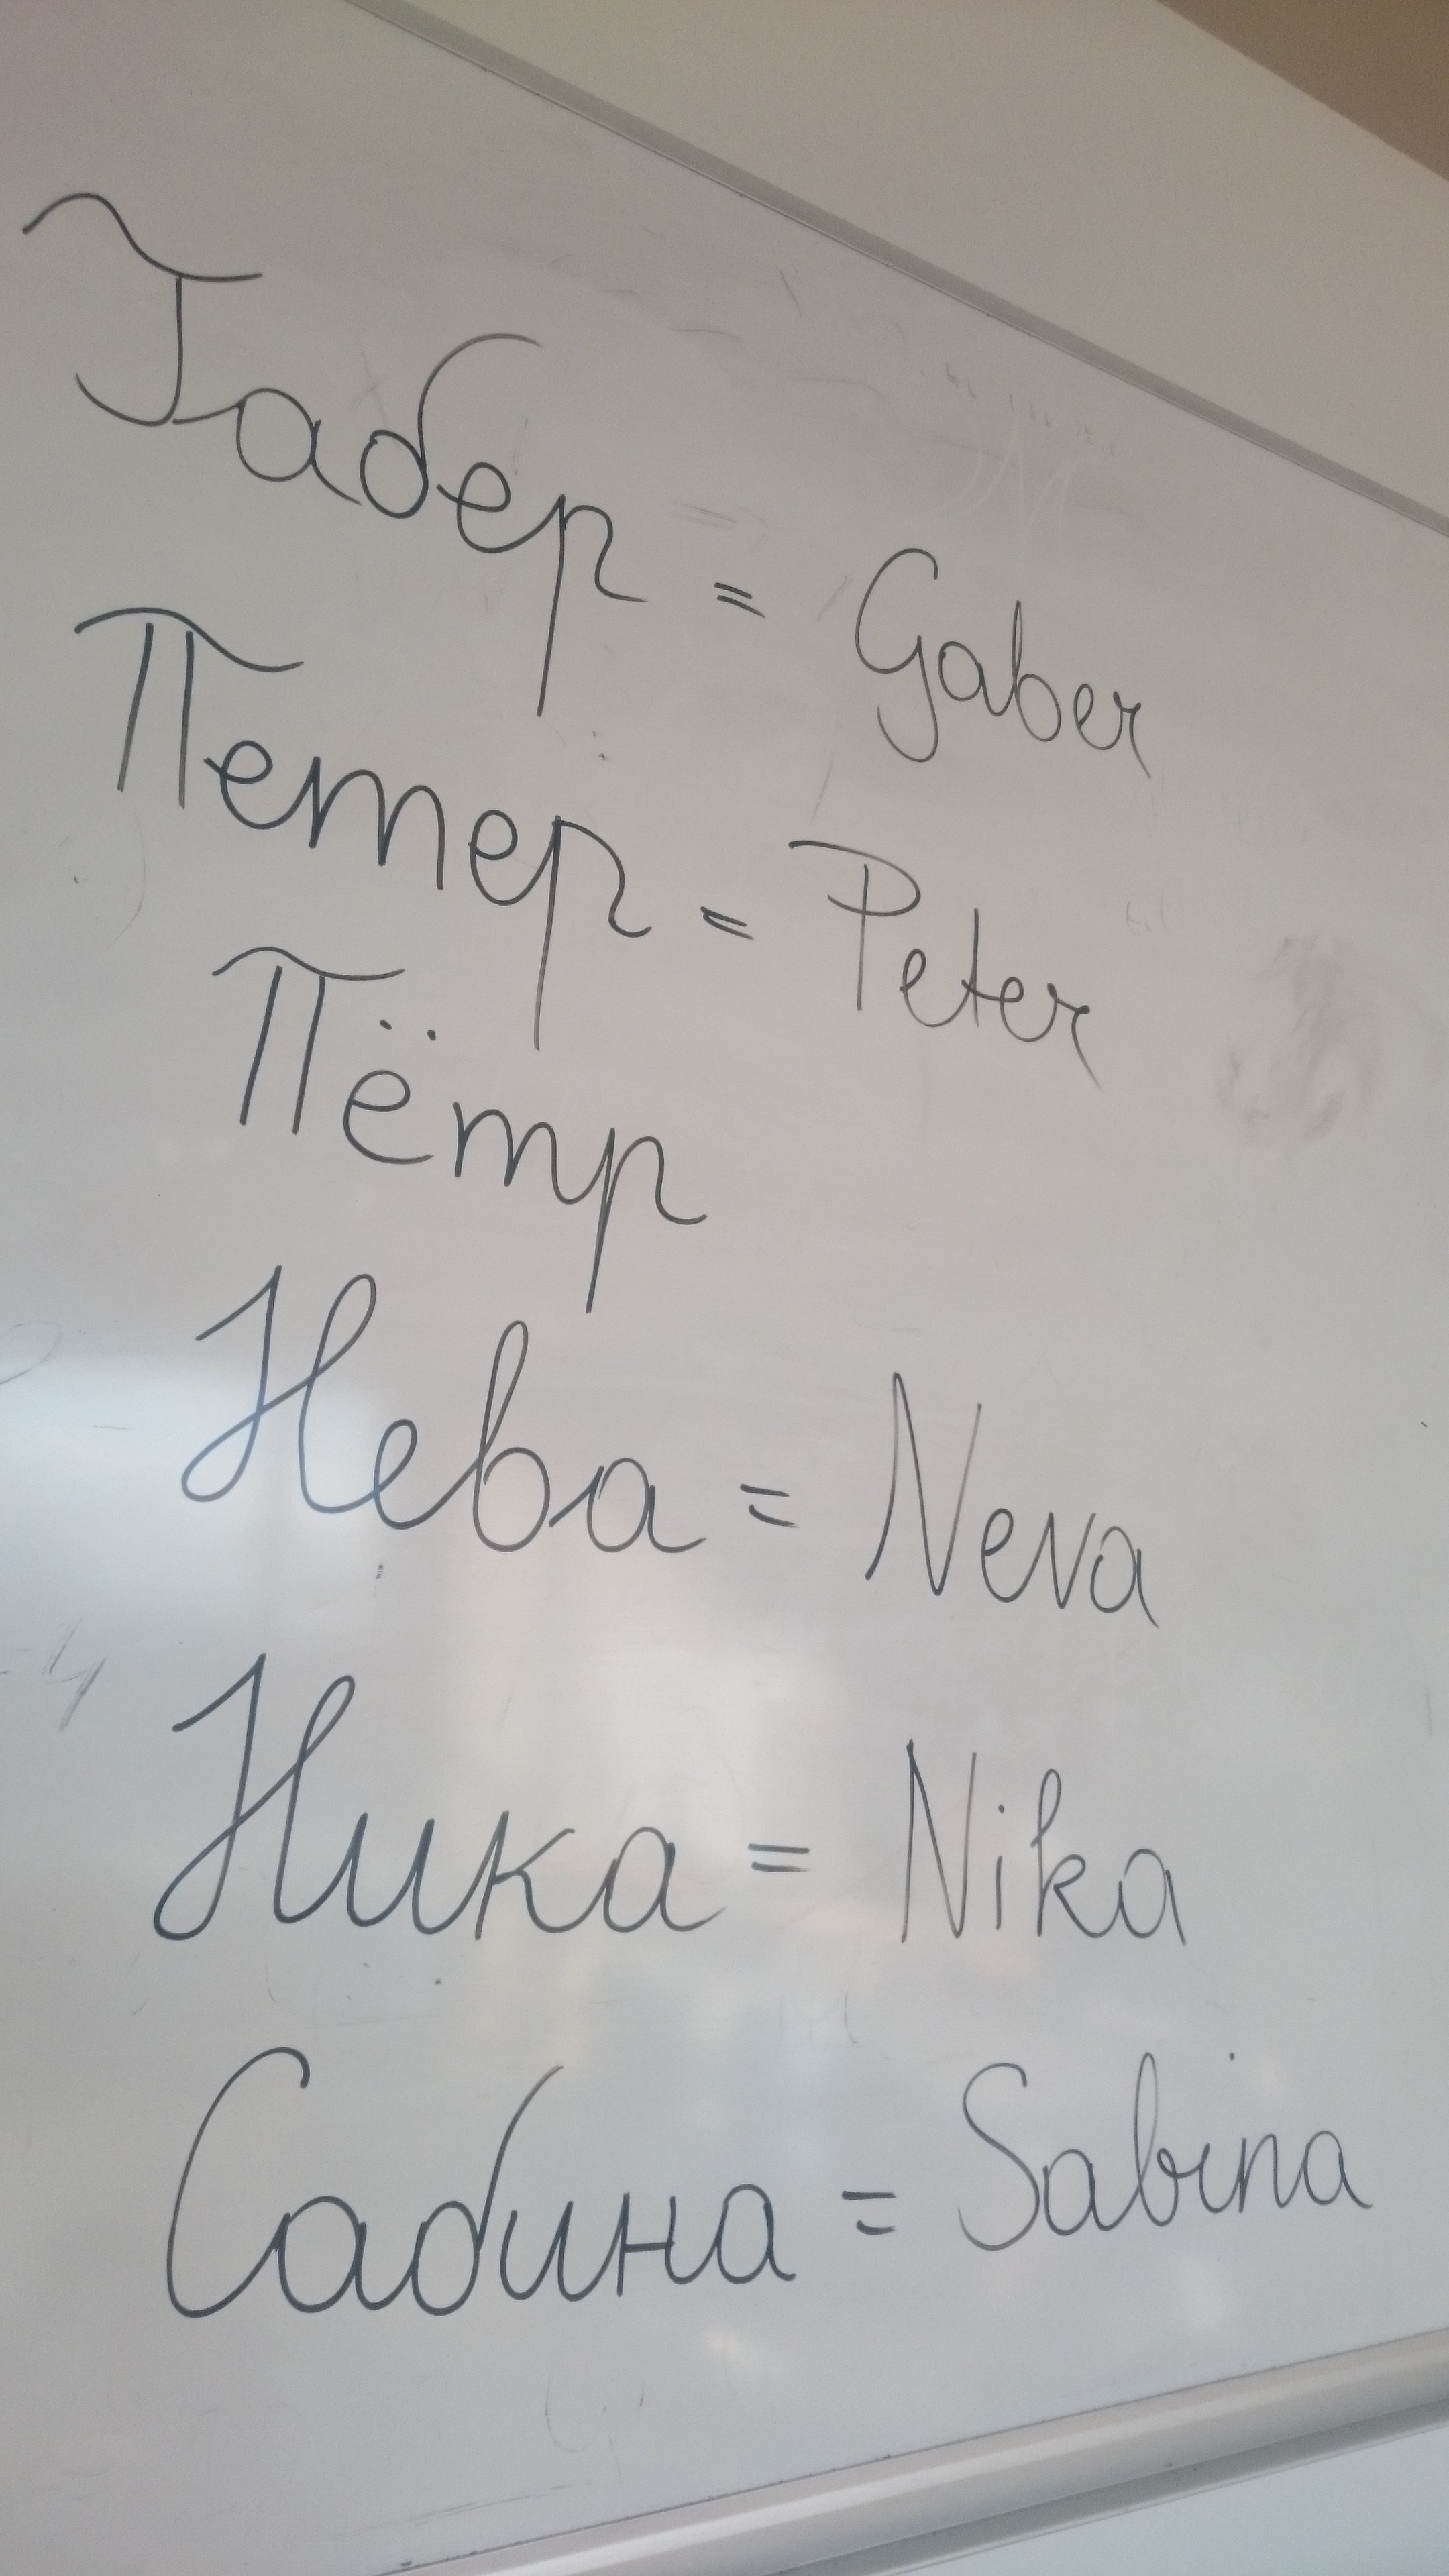 Габер = Gaber
Петер = Peter
Пётр
Нева = Neva
Ника = Nika
Сабина = Sabina